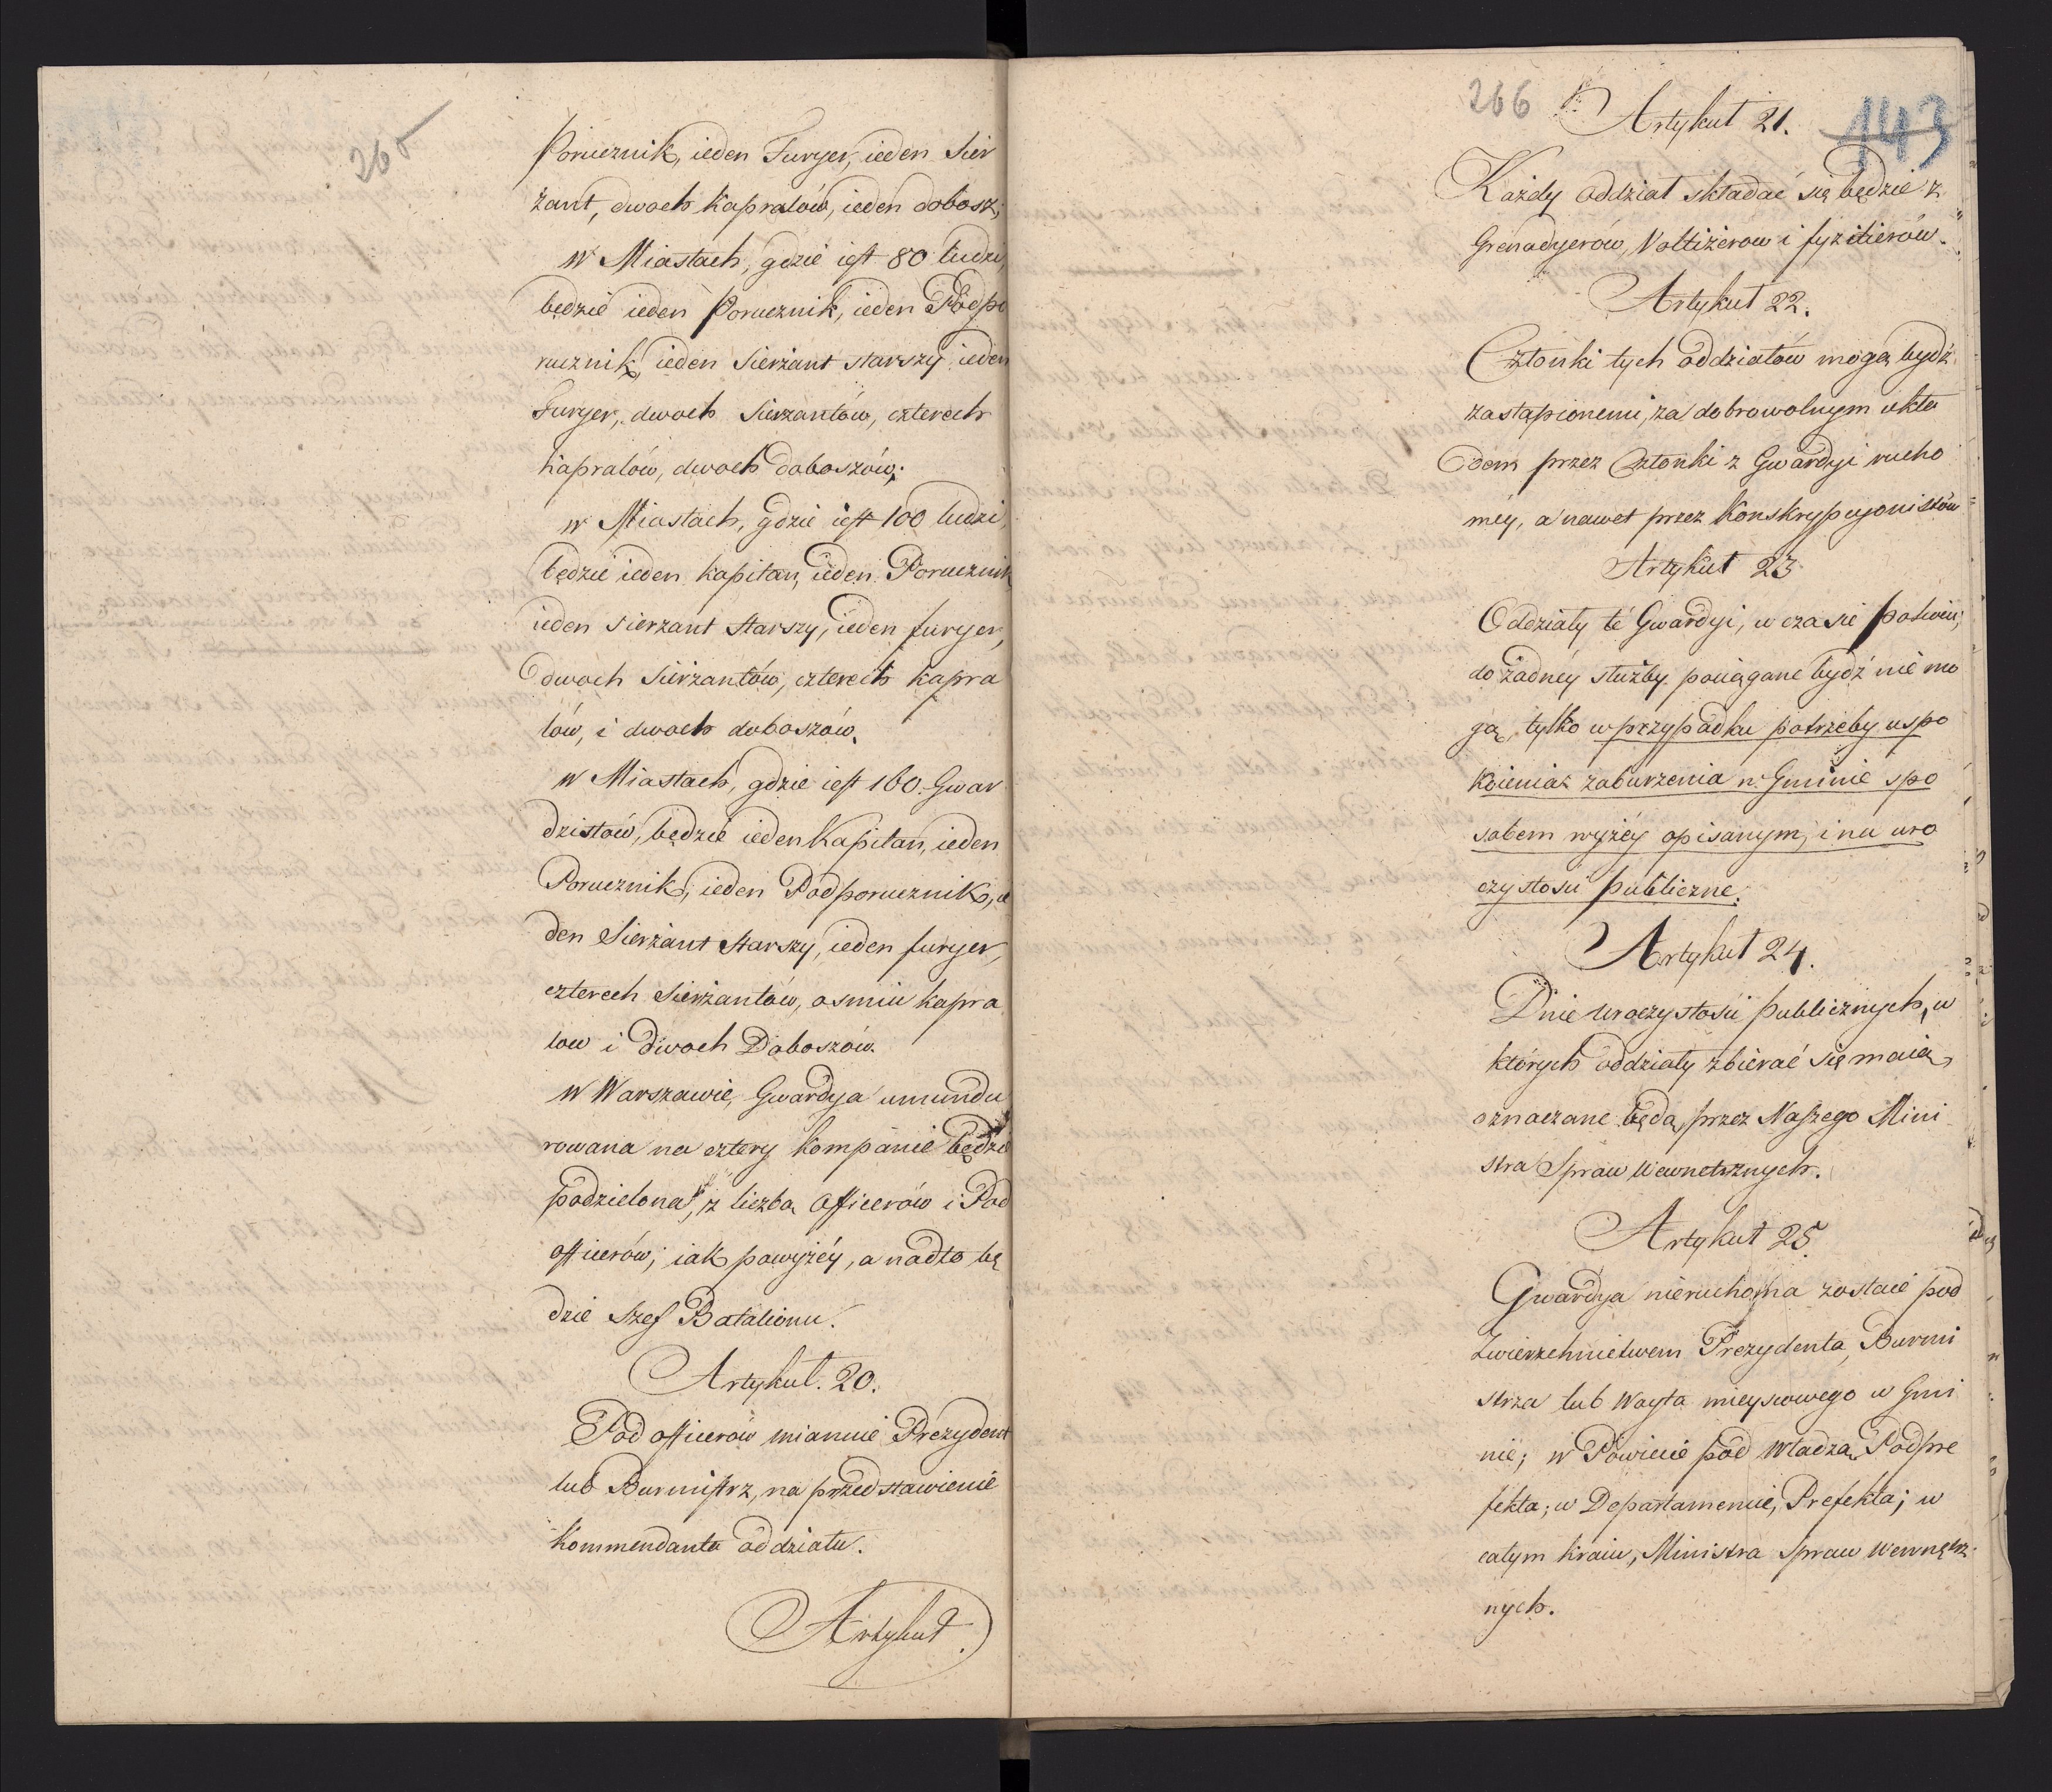 265
Porucznik, ieden Furyer, ieden Sier
żant, dwoch kapralów, ieden dobosz;
w Miastach, gdzie iest 80 ludzi,
będzie ieden Porucznik, ieden Podpo
rucznik, ieden Sierżant starszy ieden
Furyer, dwoch Sierżantów, czterech
kapralów, dwoch doboszów;
w Miastach, gdzie iest 100 ludzi,
będzie ieden kapitan, ieden Porucznik
ieden sierżant starszy, ieden furyer,
dwoch sierżantów, czterech kapra
lów, i dwoch doboszów.
w Miastach, gdzie iest 160. Gwar
dzistów, będzie ieden kapitan, ieden
Porucznik, ieden Podporucznik, ie
den Sierżant starszy, ieden furyer,
czterech sierżantów, osmiu kapra
low i dwoch Doboszów.
w Warszawie, Gwardya umundu
rowana na cztery kompanie będzie
podzielona, z liczbą officerów i Pod
officerów; iak powyżéy, a nadto bę
dzie szef Batalionu.
Artykuł. 20.
Pod officerów mianuie Prezydent
lub Burmistrz, na przedstawienie
kommendanta oddziału.
Artykuł.
266
143
Artykuł 21.
Każdy oddział składać się będzie z
Grenadyerów, Voltiżerow i fyzilierów.
Artykuł 22.
Członki tych oddziałów mogą bydź
zastąpionemi, za dobrowolnym ukła
dem przez Członki z Gwardyi rucho
méy, a nawet przez Konskrypcyonistów
Artykuł 23
Oddziały té Gwardyi, w czasie pokoiu,
do żadnéy służby pociągane bydź nie mo
gą, tylko w przypadku potrzeby uspo
koienia zaburzenia w Gminie spo
sobem wyżéy opisanym, i na uro
czystości publiczne.
Artykuł 24.
Dnie uroczystości publicznych, w
których oddziały zbierać się maią,
oznaczane będą, przez Naszego Mini
stra Spraw Wewnetrznych.
Artykuł 25.
Gwardya nieruchoma zostaie pod
Zwierzchnictwem Prezydenta, Burmi
strza lub Woyta mieyscowego w Gmi
nie; w Powiecie pod władzą Podpre
fekta; w Departamencie, Prefekta; w
całym kraiu, Ministra Spraw Wewnętrz
nych.